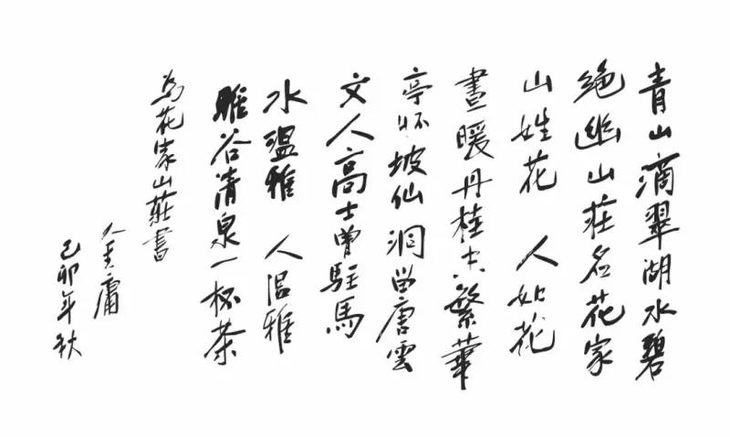 青山滴翠湖水碧
絕幽山莊名花家
山姓花 人如花
晝暖丹桂繁華
亭怀坡仙洞留唐雲
文人高士曾駐馬
水溫雅 人温雅
谷清泉一杯茶
為花家山莊書
金庸
己卯年秋